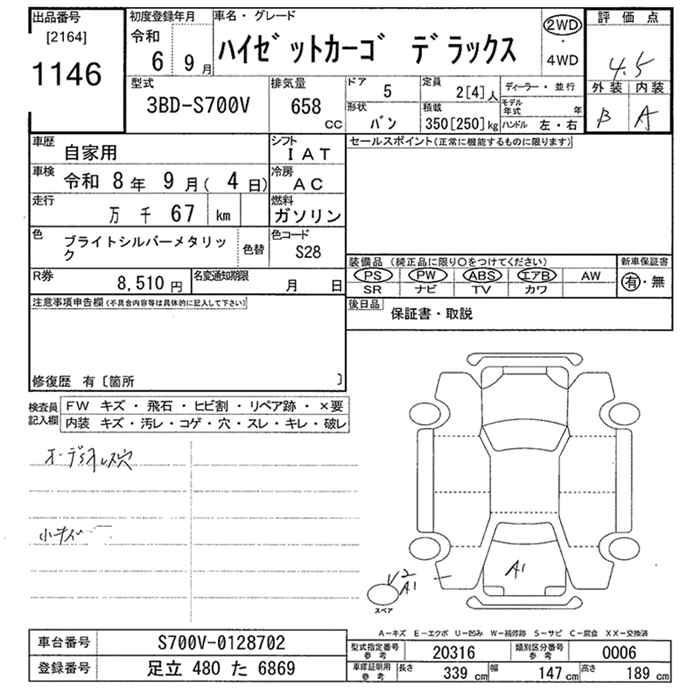 出品番号
[2164]
1146
初度登録年月
令和
6 9月
車名・グレード
ハイゼットカーゴ デラックス
2WD
・
4WD
評価点
4.5
外装 内装
B A
型式
3BD-S700V
排気量
658
CC
ドア
5
定員
2[4]人
形状
バン
積載
350[250]kg
ディーラー・並行
モデル年式 年
ハンドル 左・右
車歴
自家用
シフト
IAT
車検
令和 8年 9月(4日)
冷房
AC
走行
万 千 67 km
燃料
ガソリン
色
ブライトシルバーメタリック
色替
色コード
S28
R券
8,510円
名変通知期限
月 日
セールスポイント(正常に機能するものに限ります)
装備品(純正品に限り○をつけてください)
PS PW ABS エアB AW
SR ナビ TV カワ
新車保証書
有・無
後日品
保証書・取説
注意事項申告欄(不具合内容等は具体的に記入して下さい)
修復歴 有〔箇所 〕
検査員記入欄
FW キズ・飛石・ヒビ割・リペア跡・×要
内装 キズ・汚レ・コゲ・穴・スレ・キレ・破レ
オーディオレス穴
A1
2
A1
スペア
A-キズ E-エクボ U-凹み W-補修跡 S-サビ C-腐食 XX-交換済
車台番号
S700V-0128702
登録番号
足立 480 た 6869
型式指定番号
参考
20316
類別区分番号
参考
0006
車庫証明用
参考
長さ 339cm
幅 147cm
高さ 189cm